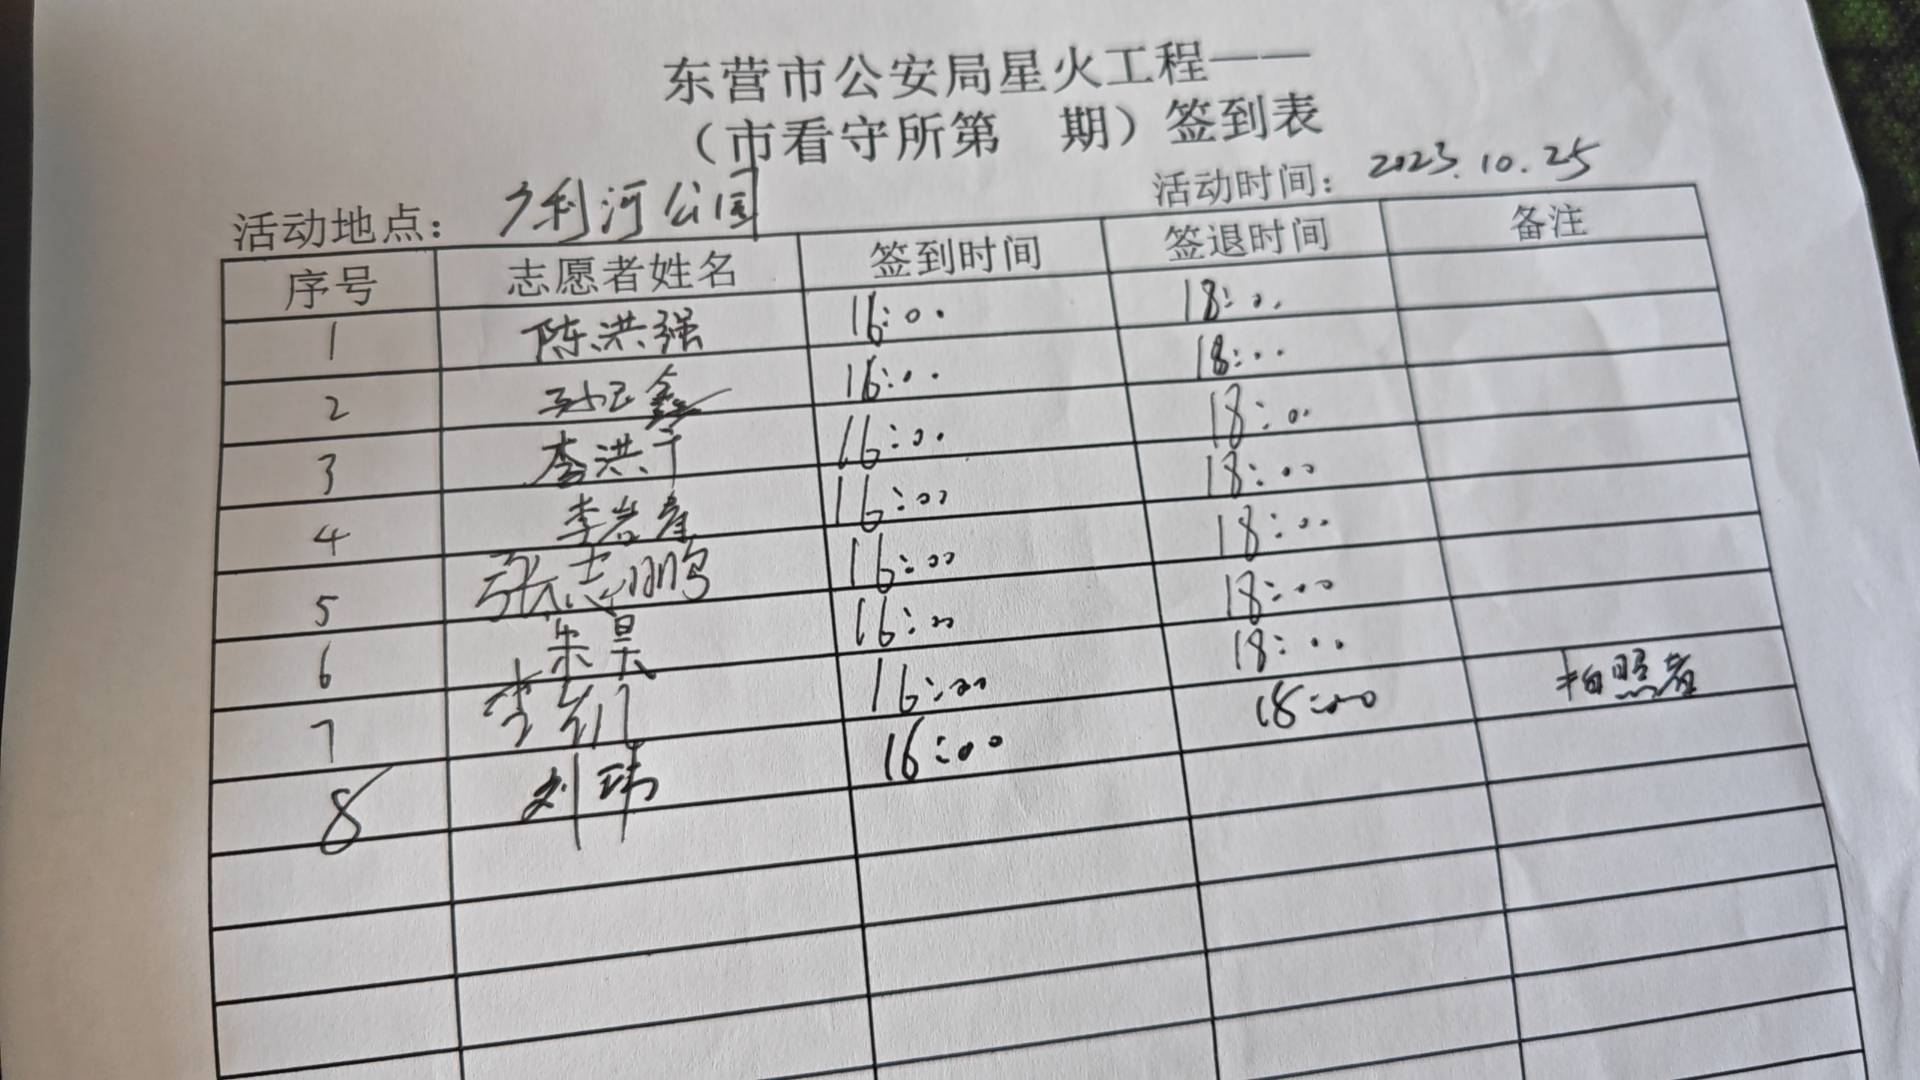 东营市公安局星火工程——
（市看守所第 期）签到表
活动地点：广利河公园 活动时间：2023.10.25
序号 志愿者姓名 签到时间 签退时间 备注
1 陈洪强 16:00 18:00
2 孙正鑫 16:00 18:00
3 李洪千 16:00 18:00
4 李岩 16:00 18:00
5 张志鹏 16:00 18:00
6 朱昊 16:00 18:00
7 李 16:00 18:00
8 刘玮 16:00 18:00 拍照者